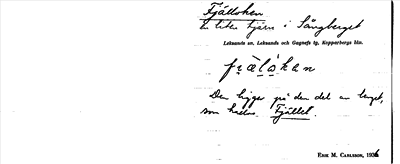 Fjälloken
En liten tjärn i Långberget
Leksands sn, Leksands och Gagnefs tg, Kopparbergs län.
fräḷo̱kan
Den ligger på den del av berget,
som heter Fjället.
ERIK M. CARLSSON, 1936